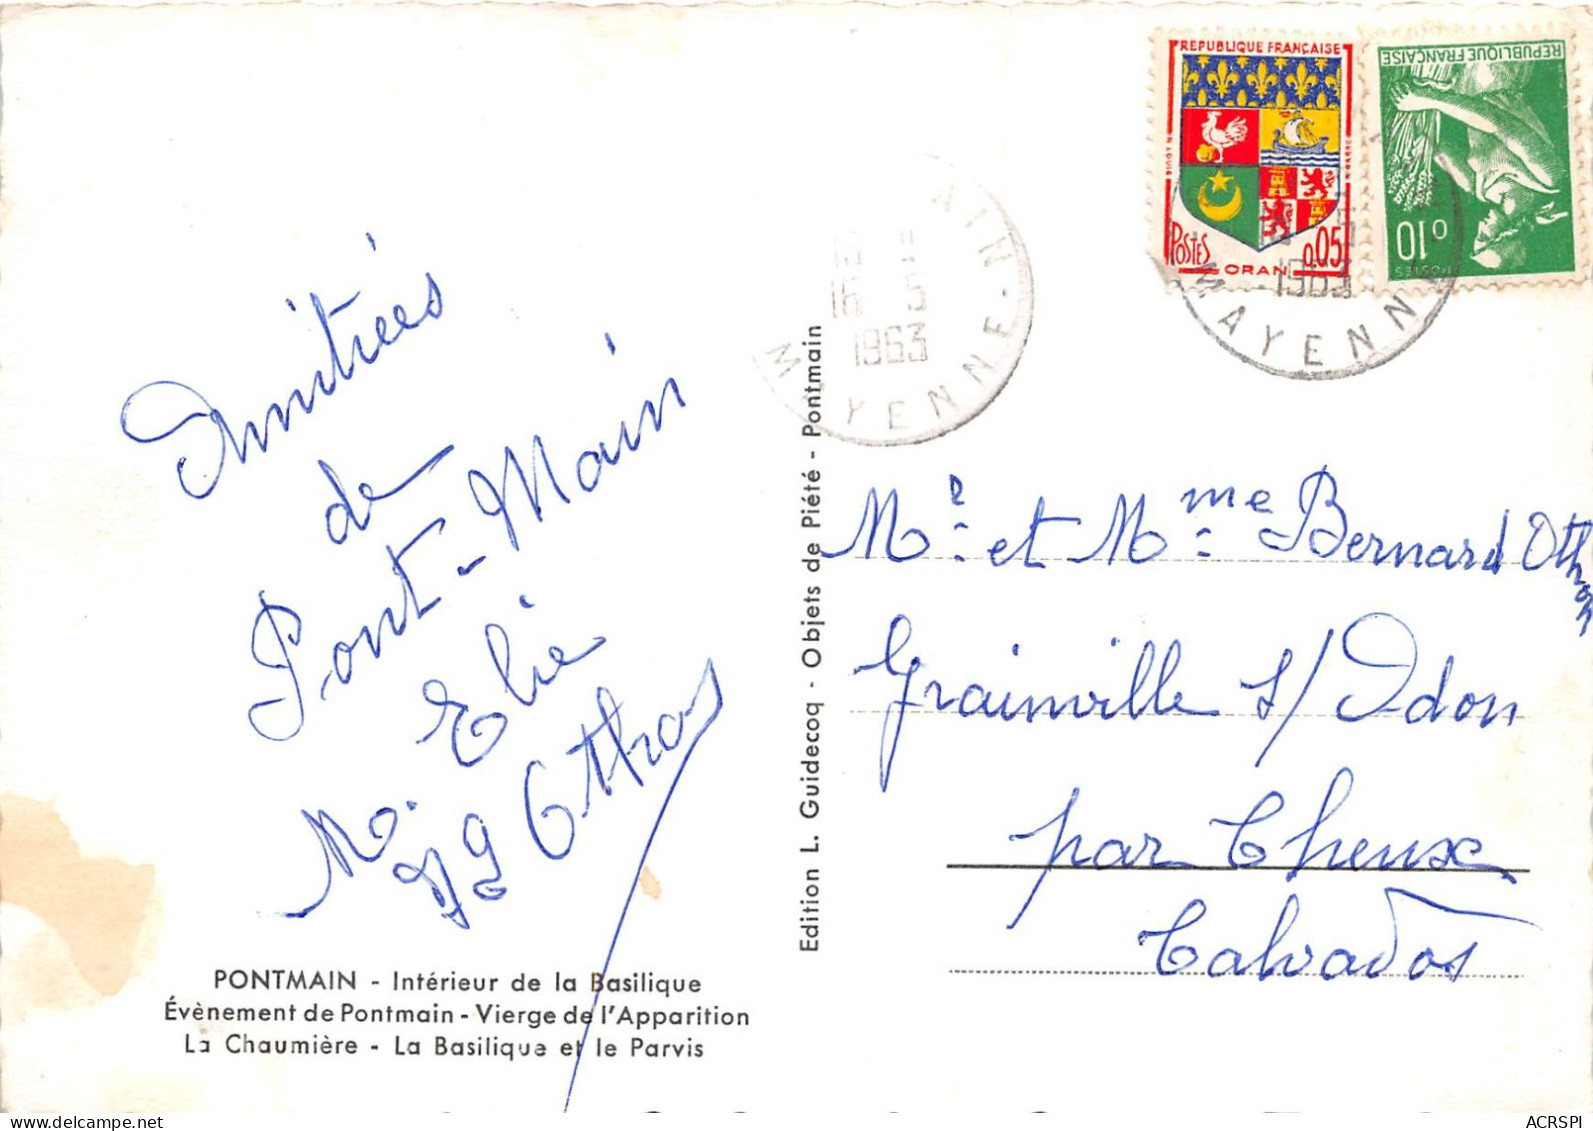 Amitiées
de
Pont-Main
Elie
Othon
PONTMAIN - Intérieur de la Basilique
Évènement de Pontmain - Vierge de l'Apparition
La Chaumière - La Basilique et le Parvis
Edition L. Guidecoq - Objets de Piété - Pontmain
16 - 5
1963
MAYENNE
REPUBLIQUE FRANÇAISE
POSTES
ORAN
0,05
REPUBLIQUE FRANÇAISE
0,10
POSTES
1963
MAYENNE
Mr et Mme Bernard Othon
Grainville s/Odon
par Cheux
Calvados
ACRSPI
www.delcampe.net